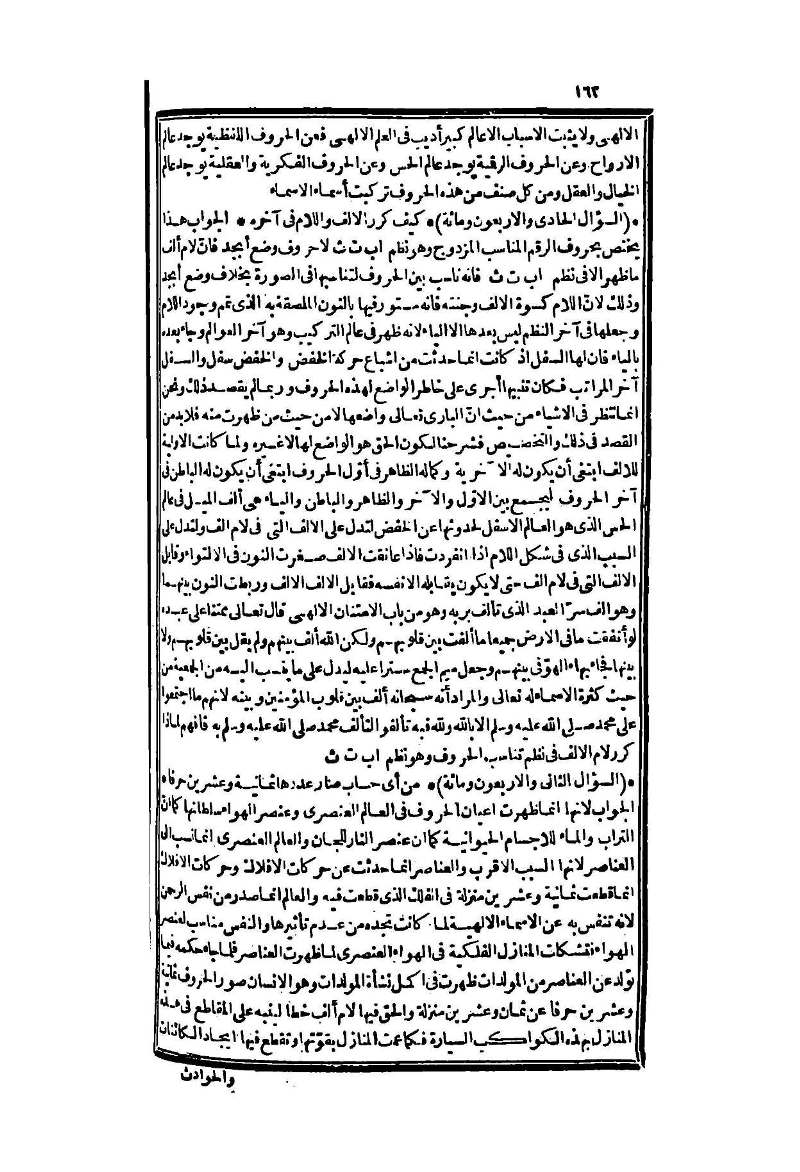 ١٦٢
الالهى ولا يثبت الاسباب الاعالم كبير أديب فى العلم الالهى فعن الحروف اللفظية يوجد عالم
الارواح وعن الحروف الرقمية يوجد عالم الحس وعن الحروف الفكرية والعقلية يوجد عالم
الخيال والعقل ومن كل صنف من هذه الحروف تركبت أسماء الاسماء
*(السؤال الحادى والاربعون ومائة)* كيف كرر الالف واللام فى آخره * الجواب هذا
يختص بحروف الرقم المناسب المزدوج وهو نظم اب ت ث لا حروف وضع أبجد فان لام ألف
ما ظهر الا فى نظم اب ت ث فانه ناسب بين الحروف لتناسبها فى الصورة بخلاف وضع أبجد
وذلك لان اللام كسوة الالف وجنته فانه مستور فيها بالنون الملصقة به الذى تم وجود اللام
وجعلها فى آخر النظم ليس بعدها الا الياء لانه ظهر فى عالم التركيب وهو آخر العوالم وجاء بعده
بالياء فان لها السفل اذ كانت انما حدثت من اشباع حركة الخفض والخفض سفل والسفل
آخر المراتب فكان تنبيها أجرى على خاطر الواضع لهذه الحروف وربما لم يقصد ذلك ونحن
انما ننظر فى الاشياء من حيث ان البارى تعالى واضعها لا من حيث من ظهرت منه فلا بد من
القصد فى ذلك والتخصيص فشرحنا لكون الحق هو الواضع لها لا غيره ولما كانت الاولية
للالف ابتغى أن يكون له الآخرية وكما له الظاهر فى أول الحروف ابتغى أن يكون له الباطن فى
آخر الحروف ليجمع بين الاول والآخر والظاهر والباطن والياء هى ألف الميل فى عالم
الحس الذى هو العالم الاسفل لحدوثها عن الخفض لتدل على الالف التى فى لام الف ولتدل على
السبب الذى فى شكل اللام اذا انفردت فاذا عانقت الالف صغرت النون فى الالتواء وقابل
الالف التى فى لام الف حتى لا يكون يقابله الا نفسه فقابل الالف الالف وربطت النون بينهما
وهو الف سر العبد الذى تألف بربه وهو من باب الامتنان الالهى قال تعالى ممتنا على عبده
لو أنفقت ما فى الارض جميعا ما ألفت بين قلوبهم ولكن الله ألف بينهم ولم يقل بين قلوبهم ولا
بينها فجاء بهاء الهو فى بينهم وجعل ميم الجمع سترا عليه ليدل على ما ينسب اليه من الجمعية من
حيث كثرة الاسماء له تعالى والمراد أنه سبحانه ألف بين قلوب المؤمنين وبينه لانهم ما اجتمعوا
على محمد صلى الله عليه وسلم الا بالله ولله فبه تألفوا لتألف محمد صلى الله عليه وسلم به فافهم لماذا
كرر لام الالف فى نظم تناسب الحروف وهو نظم اب ت ث
*(السؤال الثانى والاربعون ومائة)* من أى حساب صار عددها ثمانية وعشرين حرفا *
الجواب لانها انما ظهرت اعيان الحروف فى العالم العنصرى وعنصر الهواء سلطانها كما ان
التراب والماء للاجسام الحيوانية كما ان عنصر النار للجان والعالم العنصرى انما نسب الى
العناصر لانها السبب الاقرب والعناصر انما حدثت عن حركات الافلاك وحركات الافلاك
انما قطعت ثمانية وعشرين منزلة فى الفلك الذى قطعت فيه والعالم انما صدر من نفس الرحمن
لانه تنفس به عن الاسماء الالهية لما كانت تجده من عدم تأثيرها والنفس مناسب لعنصر
الهواء فتشكلت المنازل الفلكية فى الهواء العنصرى لما ظهرت العناصر فلما جاء حكمه فيما
تولد عن العناصر من المولدات ظهرت فى اكمل نشأة المولدات وهو الانسان صور الحروف ثمانية
وعشرين حرفا عن ثمان وعشرين منزلة والحق فيها لام ألف خطا لينبه على المقاطع فى هذه
المنازل بهذه الكواكب السيارة فكما عمت المنازل بقوتها وتقطع فيها ايجاد الكائنات
والحوادث